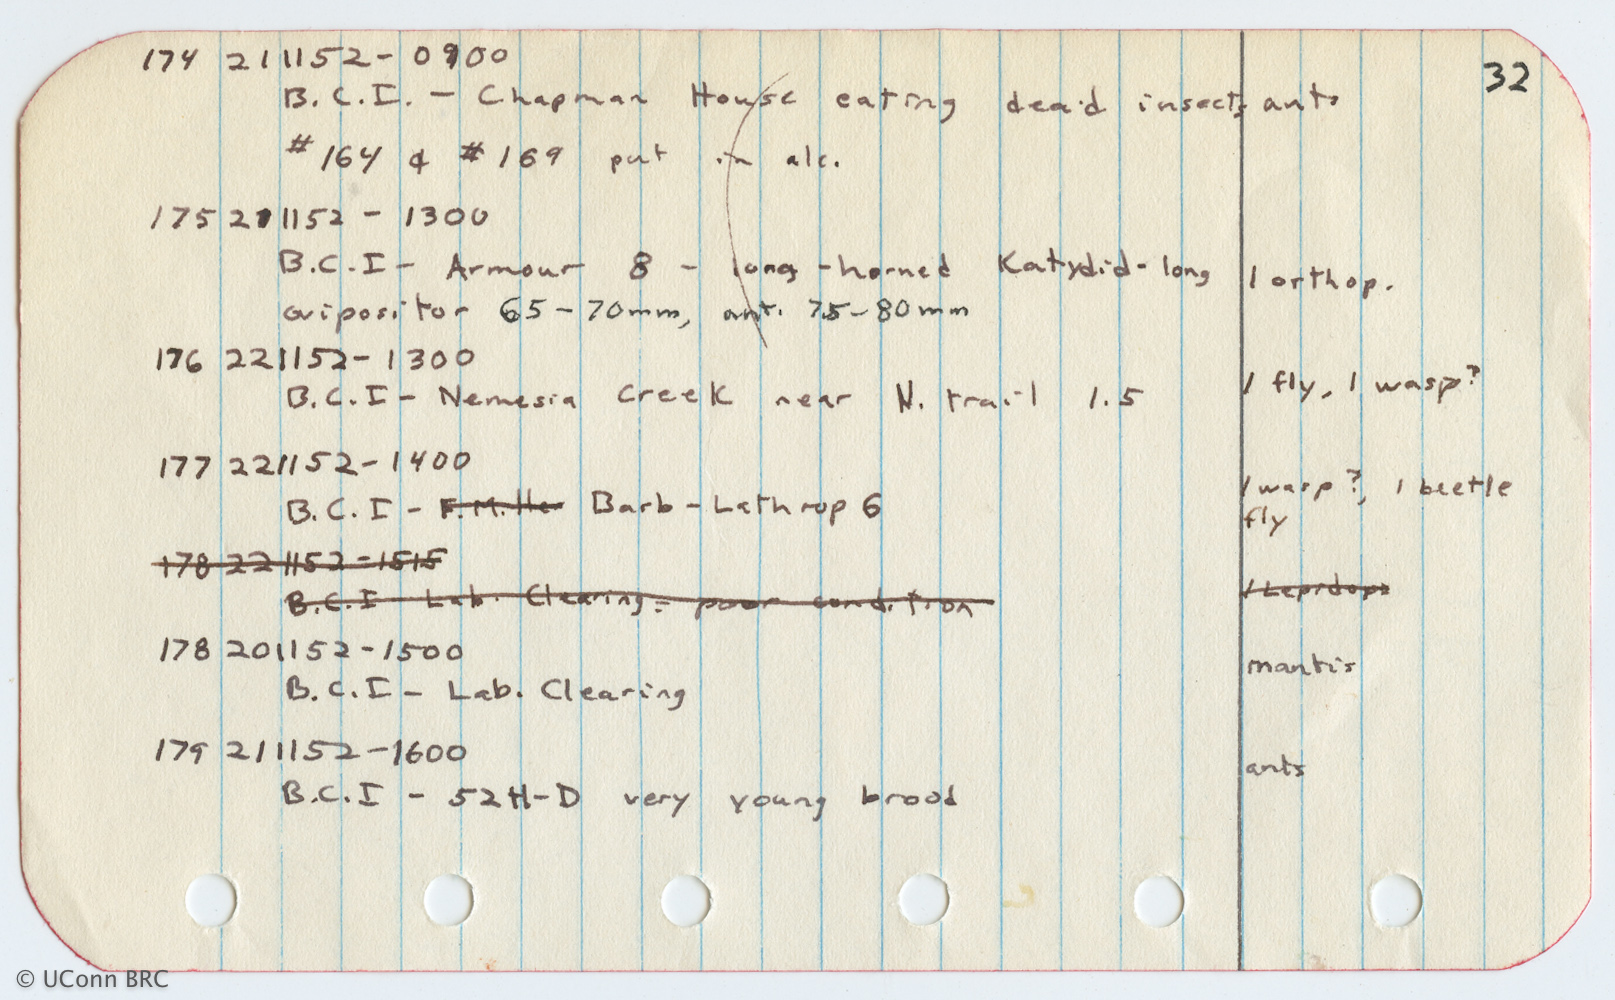 32
174 211152- 0900
B.C.I. - Chapman House eating dead insects ants
#164 & #169 put in alc.
175 211152 - 1300
B.C.I - Armour 8 - long-horned Katydid-long 1 orthop.
ovipositor 65-70mm, ant. 75-80mm
176 221152- 1300
B.C.I - Nemesia Creek near N. trail 1.5 1 fly, 1 wasp?
177 221152-1400
B.C.I - F. Mille Barb-Lathrop 6 1 wasp?, 1 beetle
fly
178 221152-1515
B.C.I Lab. Clearing - poor condition 1 Lepidop
178 201152-1500
B.C.I - Lab. Clearing mantis
179 211152-1600
B.C.I - 52H-D very young brood ants
© UConn BRC